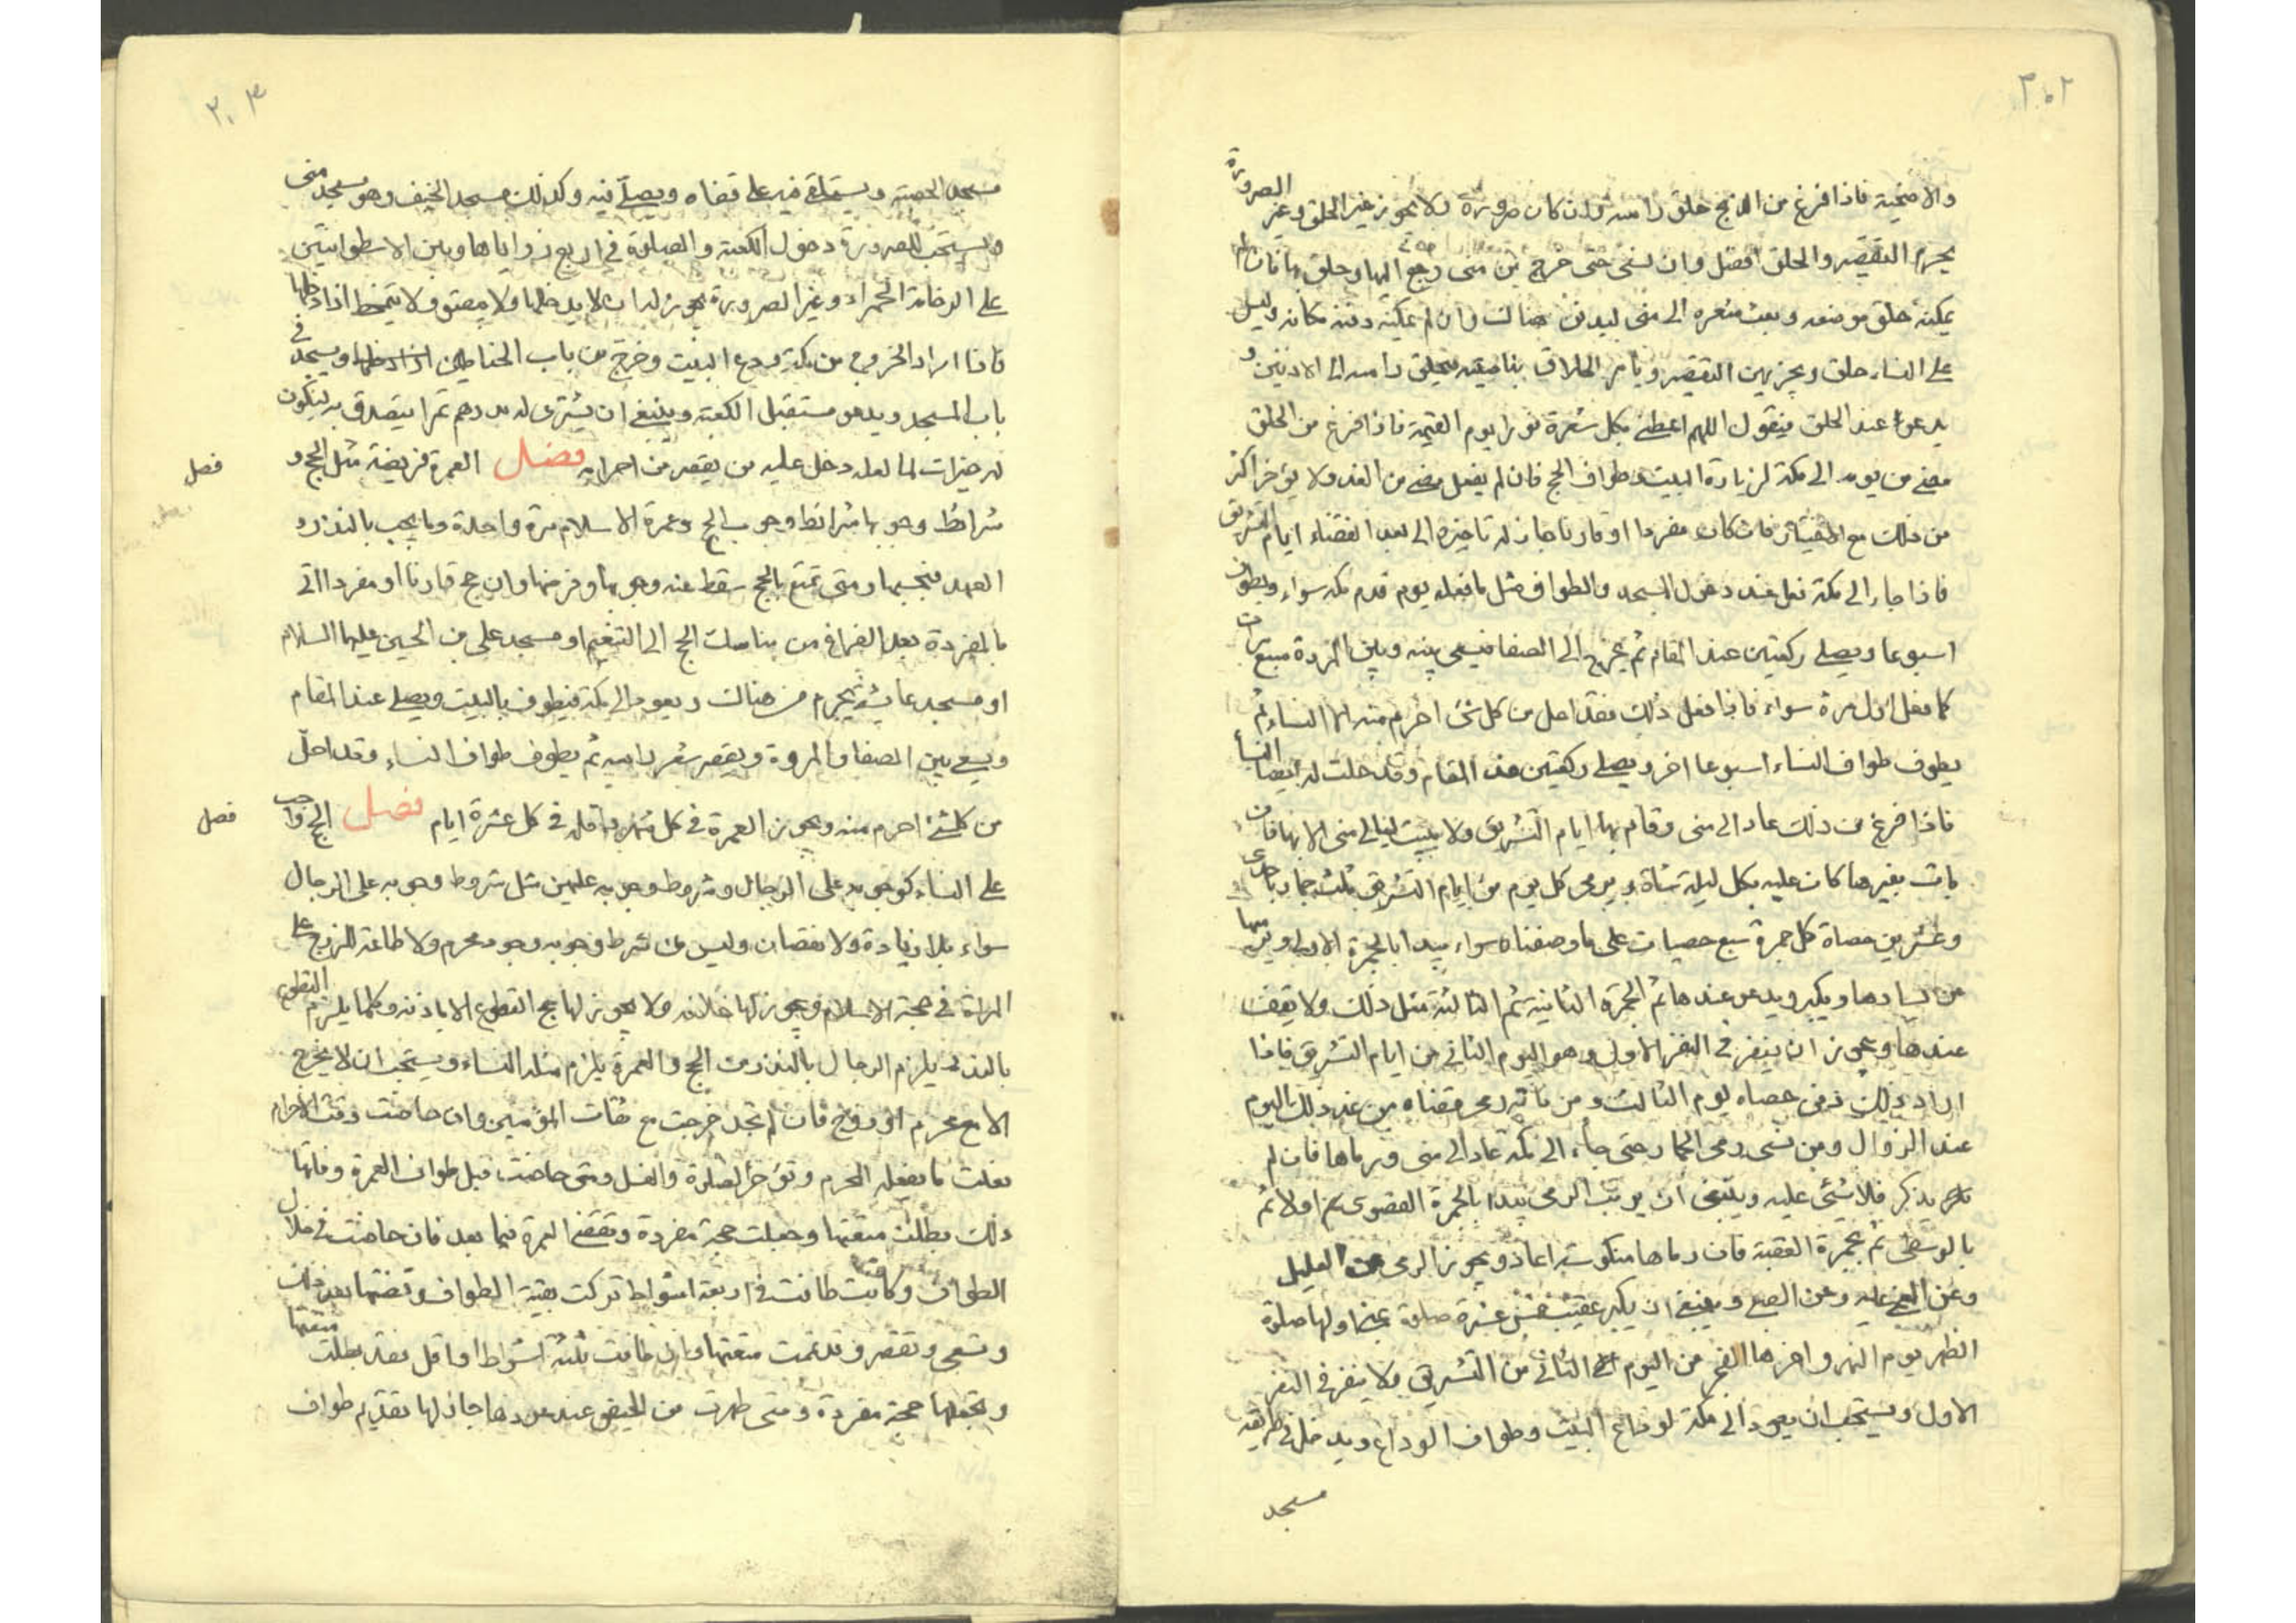 ٣٠٢
والاضحية فاذا فرغ من الذبح حلق راسه وان كان صرورة ولا يجوز غير الحلق وغير الصرورة
يجزيه التقصير والحلق افضل وان نسى حتى خرج من منى رجع اليها وحلق بها فان لم
يمكنه حلق موضعه وبعث شعره الى منى ليدفن هناك وان لم يمكنه دفنه مكانه وليس
على النساء حلق ويجزيهن التقصير ويامر الحلاق بناصيته فيحلق راسه الى الاذنين و
يدعوا عند الحلق فيقول اللهم اعطنى بكل شعرة نورا يوم القيمة فاذا فرغ من الحلق
مضى من يومه الى مكة لزيارة البيت وطواف الحج فان لم يفعل مضى من الغد ولا يؤخر اكثر
من ذلك مع الاختيار فان كان مفردا او قارنا جاز له تاخيره الى بعد انقضاء ايام التشريق
فاذا جاء الى مكة فعل عند دخول المسجد والطواف مثل ما فعله يوم قدم مكة سواء ويطوف
اسبوعا ويصلى ركعتين عند المقام ثم يخرج الى الصفا فيسعى بينه وبين المروة سبع مرات
كما فعل اول مرة سواء فاذا فعل ذلك فقد احل من كل شئ احرم منه الا النساء ثم
يطوف طواف النساء اسبوعا اخر ويصلى ركعتين عند المقام وقد حلت له ايضا النسأ
فاذا فرغ من ذلك عاد الى منى وقام بها ايام التشريق ولا يبيت ليالى منى الا بها فان
بات بغيرها كان عليه بكل ليلة شاة ويرمى كل يوم من ايام التشريق ثلث جمار باحدى
وعشرين حصاة كل جمرة سبع حصيات على ما وصفناه سواء يبدا بالجمرة الاولى ويرميها
عن يسارها ويكبر ويدعو عندها ثم الجمرة الثانية ثم الثالثة مثل ذلك ولا يقف
عندها ويجوز ان ينفر فى النفر الاول وهو اليوم الثانى من ايام التشريق فاذا
اراد ذلك دفن حصاه ليوم الثالث ومن فاته رمى قضاه من غد ذلك اليوم
عند الزوال ومن نسى رمى الجمار حتى جاء الى مكة عاد الى منى ورماها فان لم
يذكر فلا شئ عليه وينبغى ان يرتب الرمى يبدا بالجمرة القصوى اولا ثم
بالوسطى ثم بجمرة العقبة فان رماها منكوسة اعاد ويجوز الرمى عن العليل
وعن المغمى عليه وعن الصبى وينبغى ان يكبر عقيب خمس عشرة صلوة بمنى اولها صلوة
الظهر يوم النحر واخرها الفجر من اليوم الثانى من التشريق ولا ينفر فى النفر
الاول ويستحب ان يعود الى مكة لوداع البيت وطواف الوداع ويدخل فى طريقه
مسجد
٣٠٣
مسجد الحصبة ويستلقى فيه على قفاه ويصلى فيه وكذلك مسجد الخيف وهو مسجد منى
ويستحب للصرورة دخول الكعبة والصلوة فى اربع زواياها وبين الاسطوانتين
على الرخامة الحمراء وغير الصرورة يجوز له ان لا يدخلها ولا يبصق ولا يتمخط اذا دخلها
فاذا اراد الخروج من مكة ودع البيت وخرج من باب الحناطين ويسجد فى
باب المسجد ويدعو مستقبل الكعبة وينبغى ان يشترى له بدرهم تمرا يتصدق به ليكون
له جبران لما لعله دخل عليه من تقصير فى احرامه فصل العمرة فريضة مثل الحج و
فصل
شرائط وجوبها شرائط وجوب الحج وعمرة الاسلام مرة واحدة وما يجب بالنذر و
العهد فبحسبها ومتى تمتع بالحج سقط عنه وجوبها وفرضها وان حج قارنا او مفردا اتى
بالمفردة بعد الفراغ من مناسك الحج الى التنعيم او مسجد على بن الحسين عليهما السلام
او مسجد عايشة فيحرم من هناك ويعود الى مكة فيطوف بالبيت ويصلى عند المقام
ويسعى بين الصفا والمروة ويقصر شعر راسه ثم يطوف طواف النساء وقد احل
من كل شئ احرم منه ويجوز العمرة فى كل شهر واقله فى كل عشرة ايام فصل الحج واجب
فصل
على النساء كوجوبه على الرجال وشروط وجوبه عليهن مثل شروط وجوبه على الرجال
سواء بلا زيادة ولا نقصان وليس من شرط وجوبه وجود محرم ولا طاعة للزوج على
المراة فى حجة الاسلام ويجوز لها خلافه ولا يجوز لها حج التطوع الا باذنه وكلما يلزم التطوع
بالنذر يلزم الرجال بالنذر من الحج والعمرة يلزم مثله النساء ويستحب ان لا يخرج
الا مع محرم او زوج فان لم تجد خرجت مع ثقات المؤمنين وان حاضت وقت الاحرام
فعلت ما يفعله المحرم وتؤخر الصلوة والغسل ومتى حاضت قبل طواف العمرة وفاتها
ذلك بطلت متعتها وجعلت حجة مفردة وتقضى العمرة فيما بعد فان حاضت فى خلال
الطواف وكانت طافت اربعة اشواط تركت بقية الطواف وقضتها بعد ذلك
وتسعى وتقصر وقد تمت متعتها وان طافت ثلثة اشواط او اقل فقد بطلت متعتها
وتجعلها حجة مفردة ومتى طهرت من الحيض جاز لها تقديم طواف